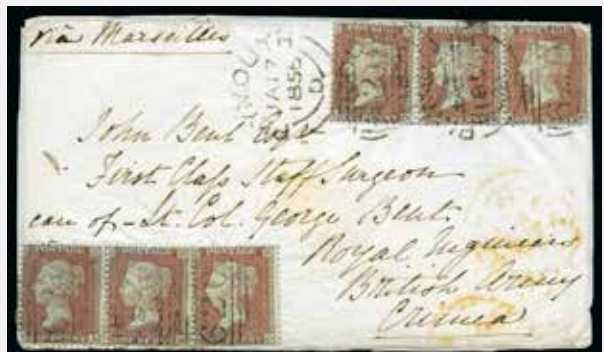 via Marseilles
JA 17
1856
D
John Bent Esqr
First Class Staff Surgeon
care of - Lt. Col. George Bent
Royal Engineers
British Army
Crimea